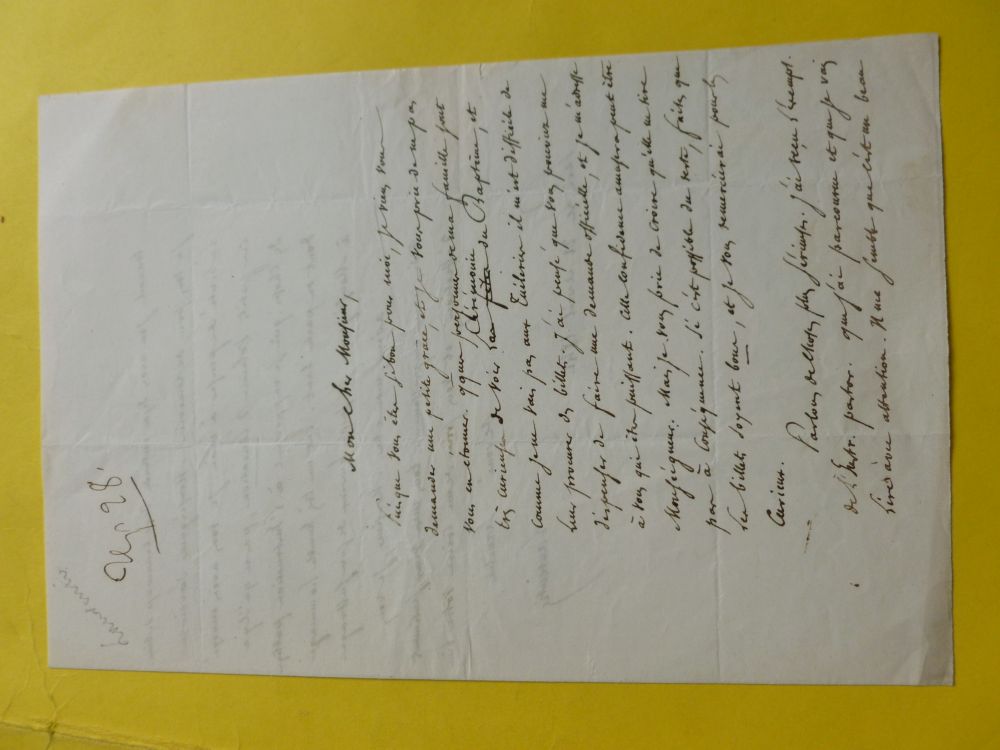 Ug 98
Mon cher Monsieur,
Puisque vous êtes si bon pour moi, je viens vous
demander une petite grâce, et je vous prie de ne pas
vous en étonner. qques personnes de ma famille sont
très curieuses de voir la fête Cérémonie du Baptême, et
comme je ne vais pas aux Tuileries il m'est difficile de
leur procurer des billets. J'ai pensé que vous pouviez me
dispenser de faire une demande officielle, et je m'adresse
à vous qui êtes puissant. Cette confidence amusera peut être
Monseigneur. Mais je vous prie de croire qu'elle ne tire
pas à conséquence. Si c'est possible du reste, faites que
les billets soyent bons, et je vous remercierai pour les
curieux.
Parlons de choses plus sérieuses. J'ai reçu l'exempl.
de l'Instr. pastor. que j'ai parcourue et que je vais
lire avec attention. Il me semble que c'est un beau